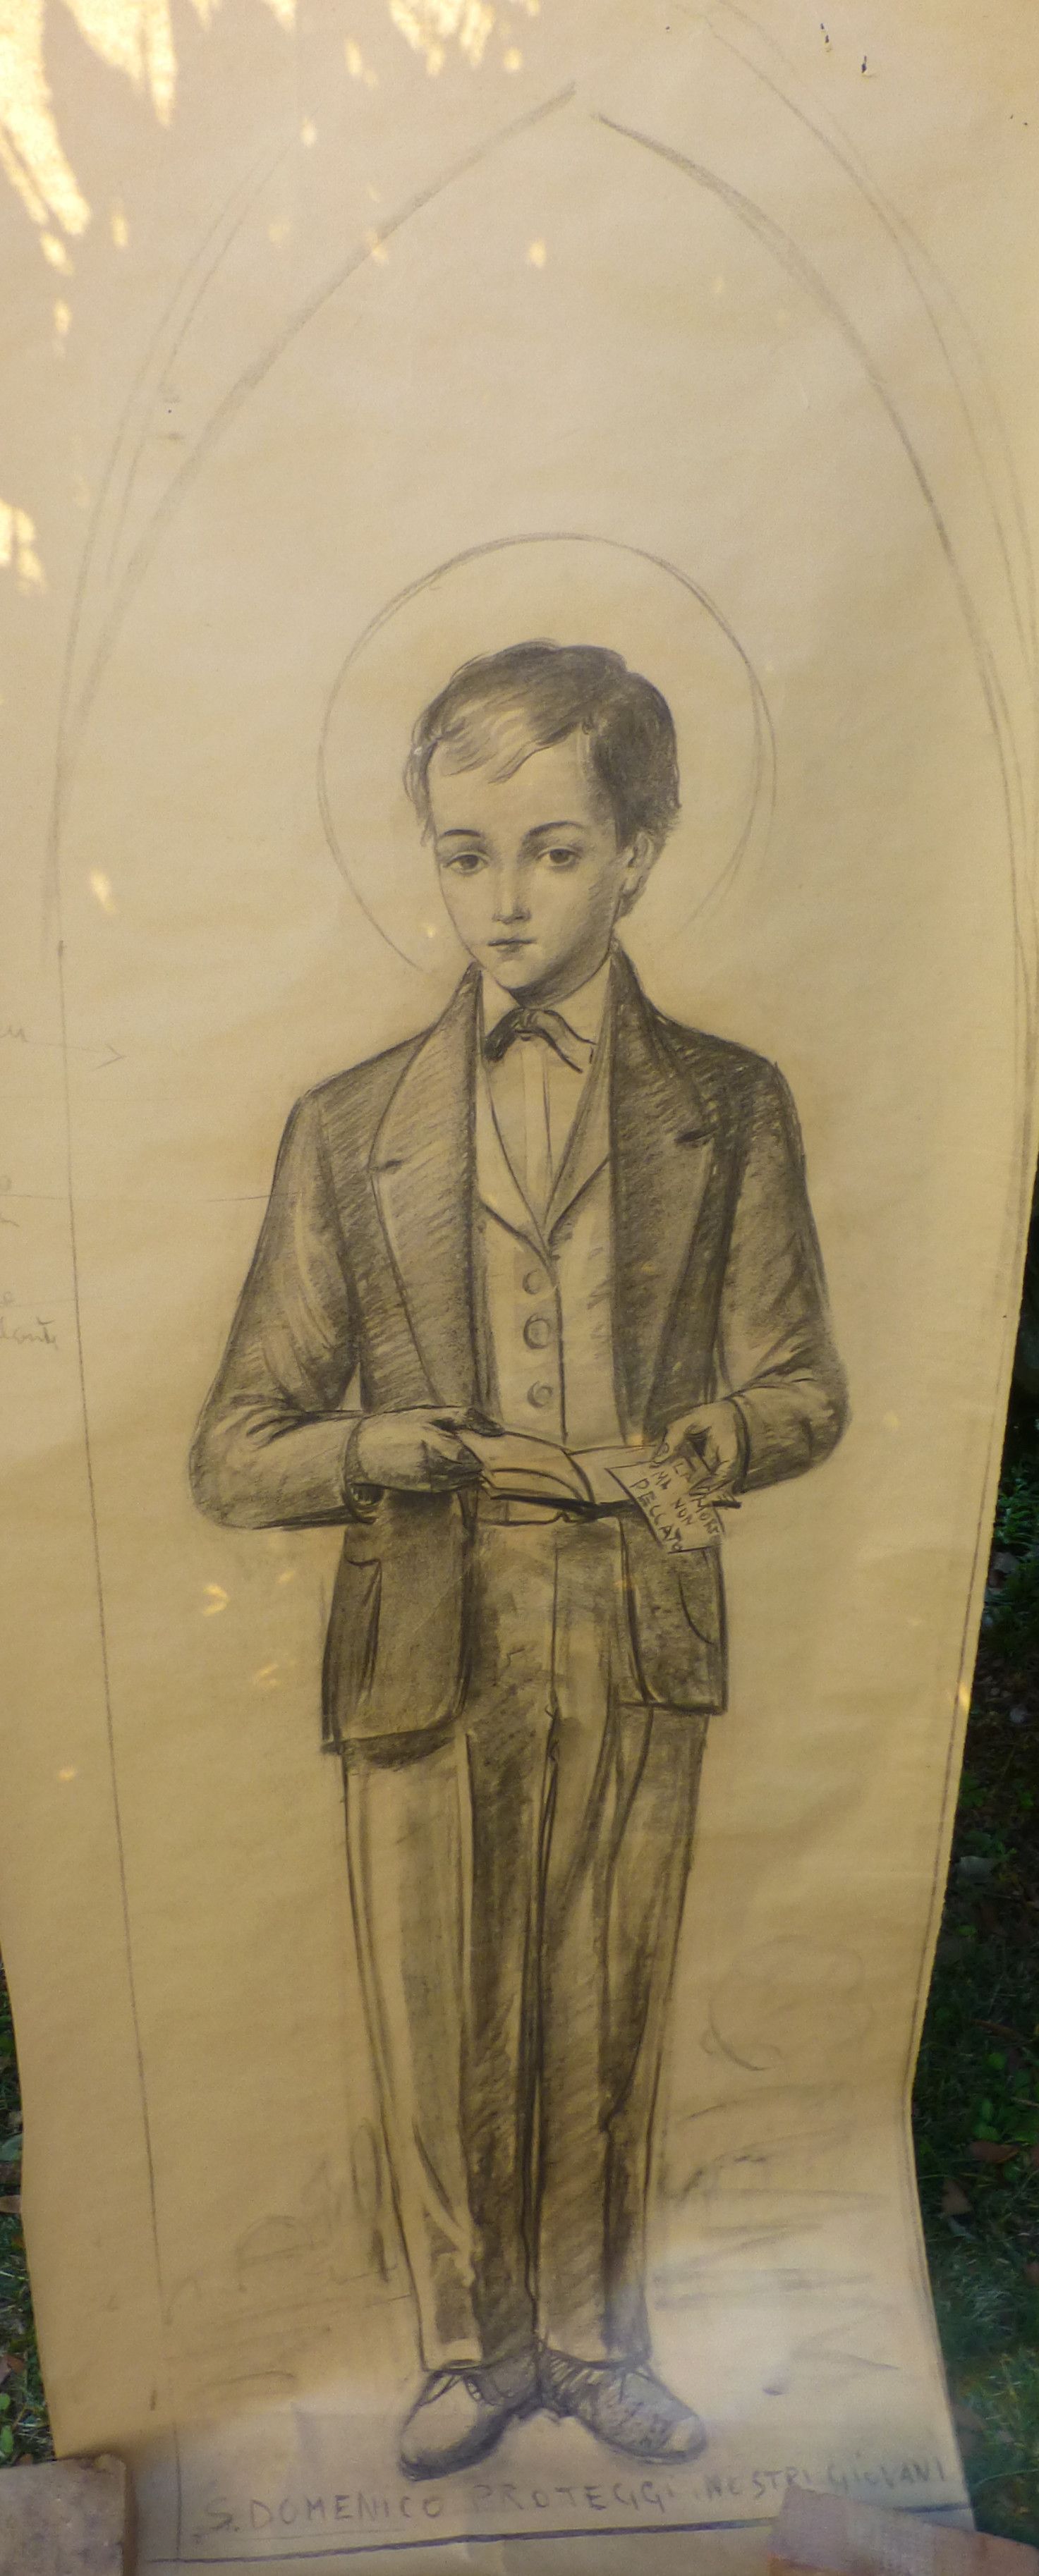 LA MORTE
MA NON
PECCATO
S. DOMENICO PROTEGGI I NOSTRI GIOVANI